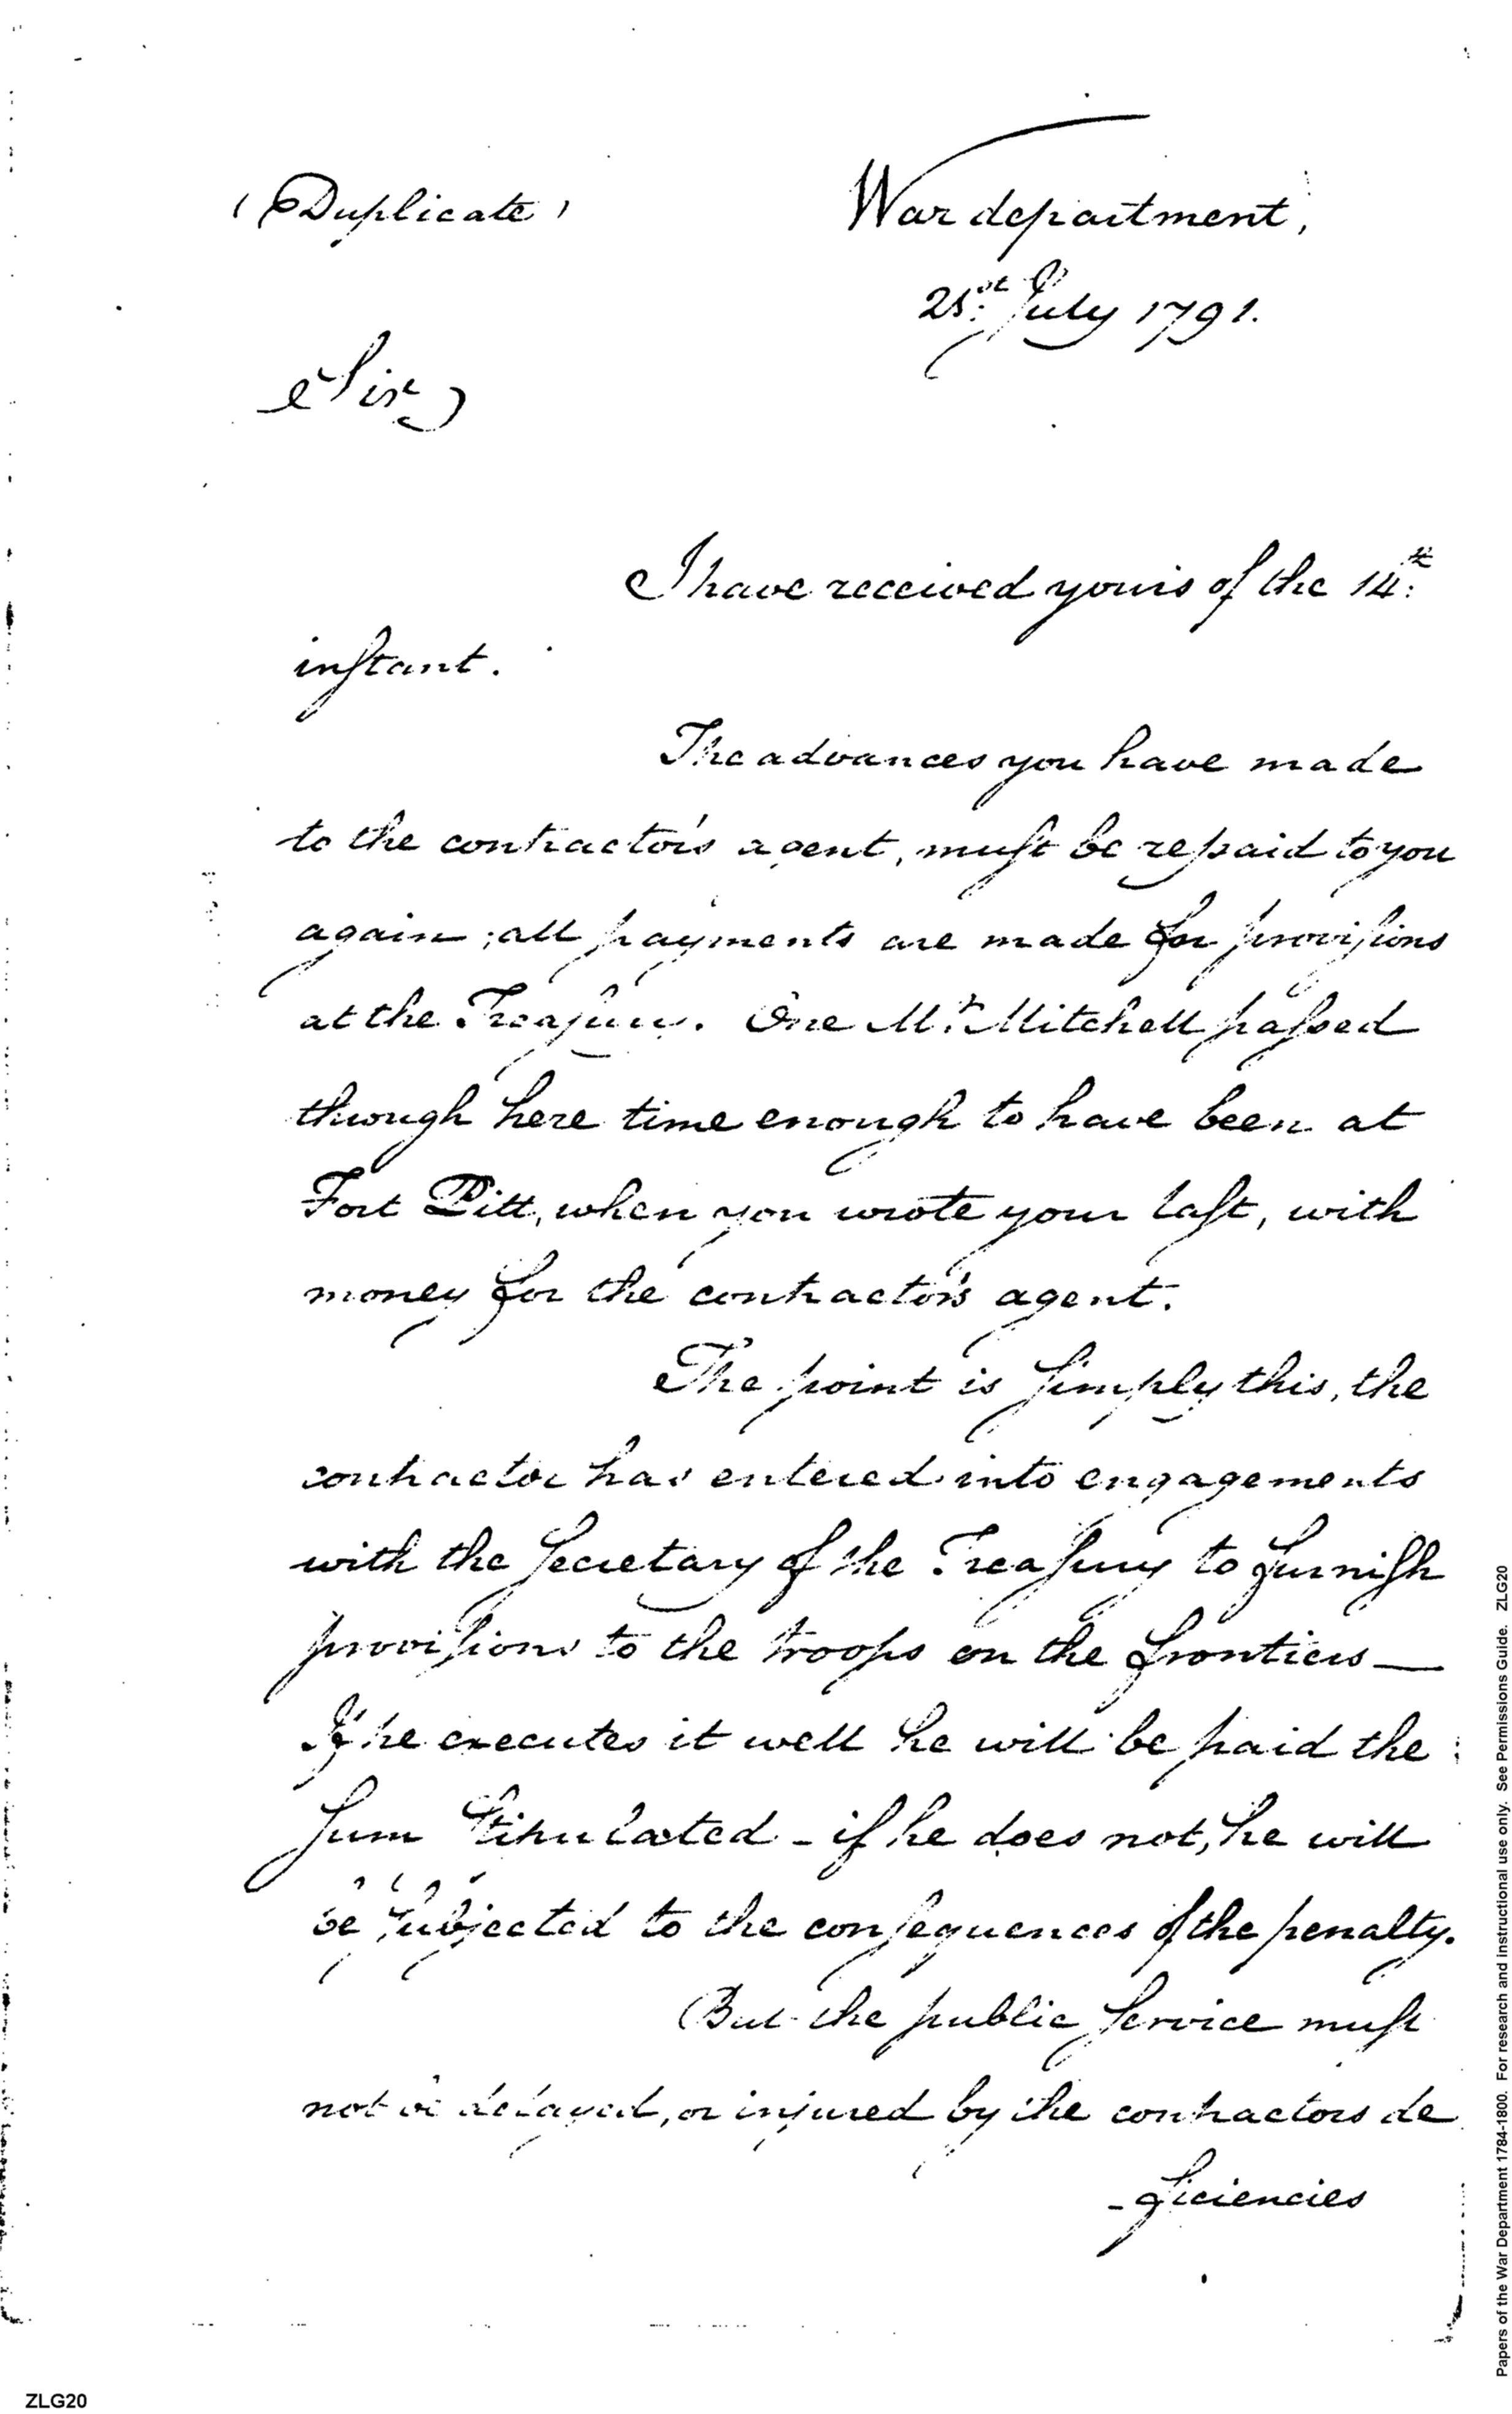 (Duplicate)
War department,
21st July 1791.
Sir,
I have received yours of the 14th:
instant.
The advances you have made
to the contractor's agent, must be repaid to you
again; all payments are made for provisions
at the Treasury. One Mr. Mitchell passed
through here time enough to have been at
Fort Pitt, when you wrote your last, with
money for the contractor's agent.
The point is simply this, the
contractor has entered into engagements
with the Secretary of the Treasury to furnish
provisions to the troops on the frontiers—
If he executes it well he will be paid the
sum stipulated - if he does not, he will
be subjected to the consequences of the penalty.
But the public service must
not be delayed, or injured by the contractors de
-ficiencies
Papers of the War Department 1784-1800. For research and instructional use only. See Permissions Guide. ZLG20
ZLG20